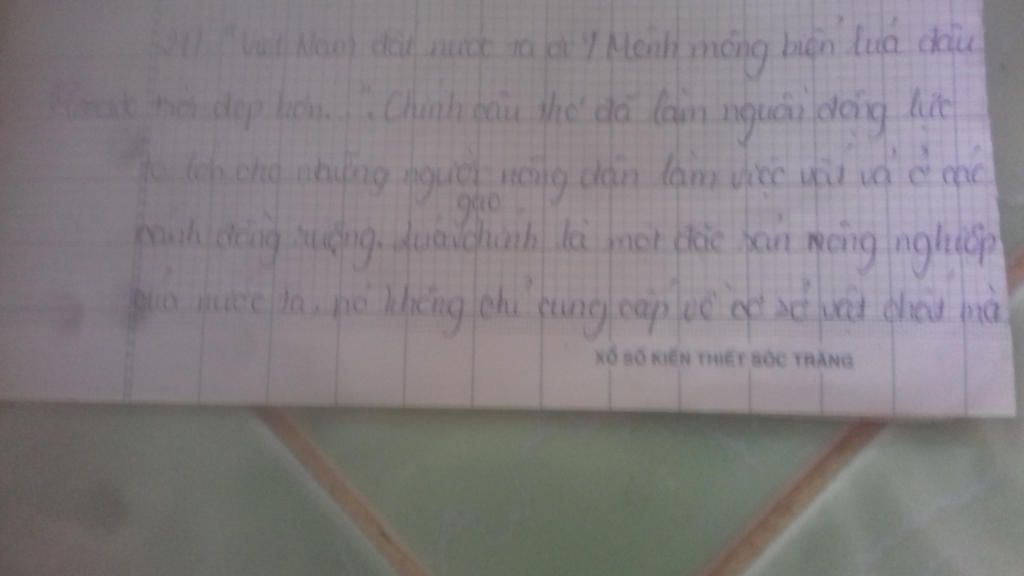 21) "Việt Nam đất nước ta ơi / Mênh mông biển luá đâu
trời đẹp hơn.". Chính câu thơ đã làm nguồn động lực
to lớn cho những người nông dân làm việc vất vả ở các
gạo
cánh đồng ruộng. Luá chính là một đặc sản nông nghiệp
của nước ta, nó không chỉ cung cấp về cơ sở vật chất mà
XỔ SỐ KIẾN THIẾT SÓC TRĂNG